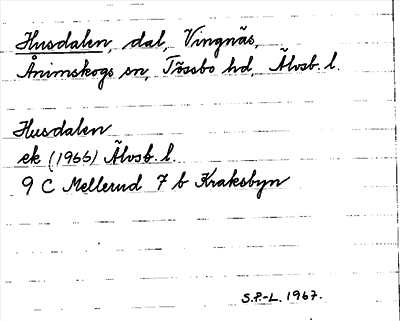 Husdalen, dal, Vingnäs,
Ånimskogs sn, Tössbo hd, Älvsb. l.
Husdalen
ek (1966) Älvsb. l.
9 C Mellerud 7 b Kraksbyn
S.P.-L. 1967.